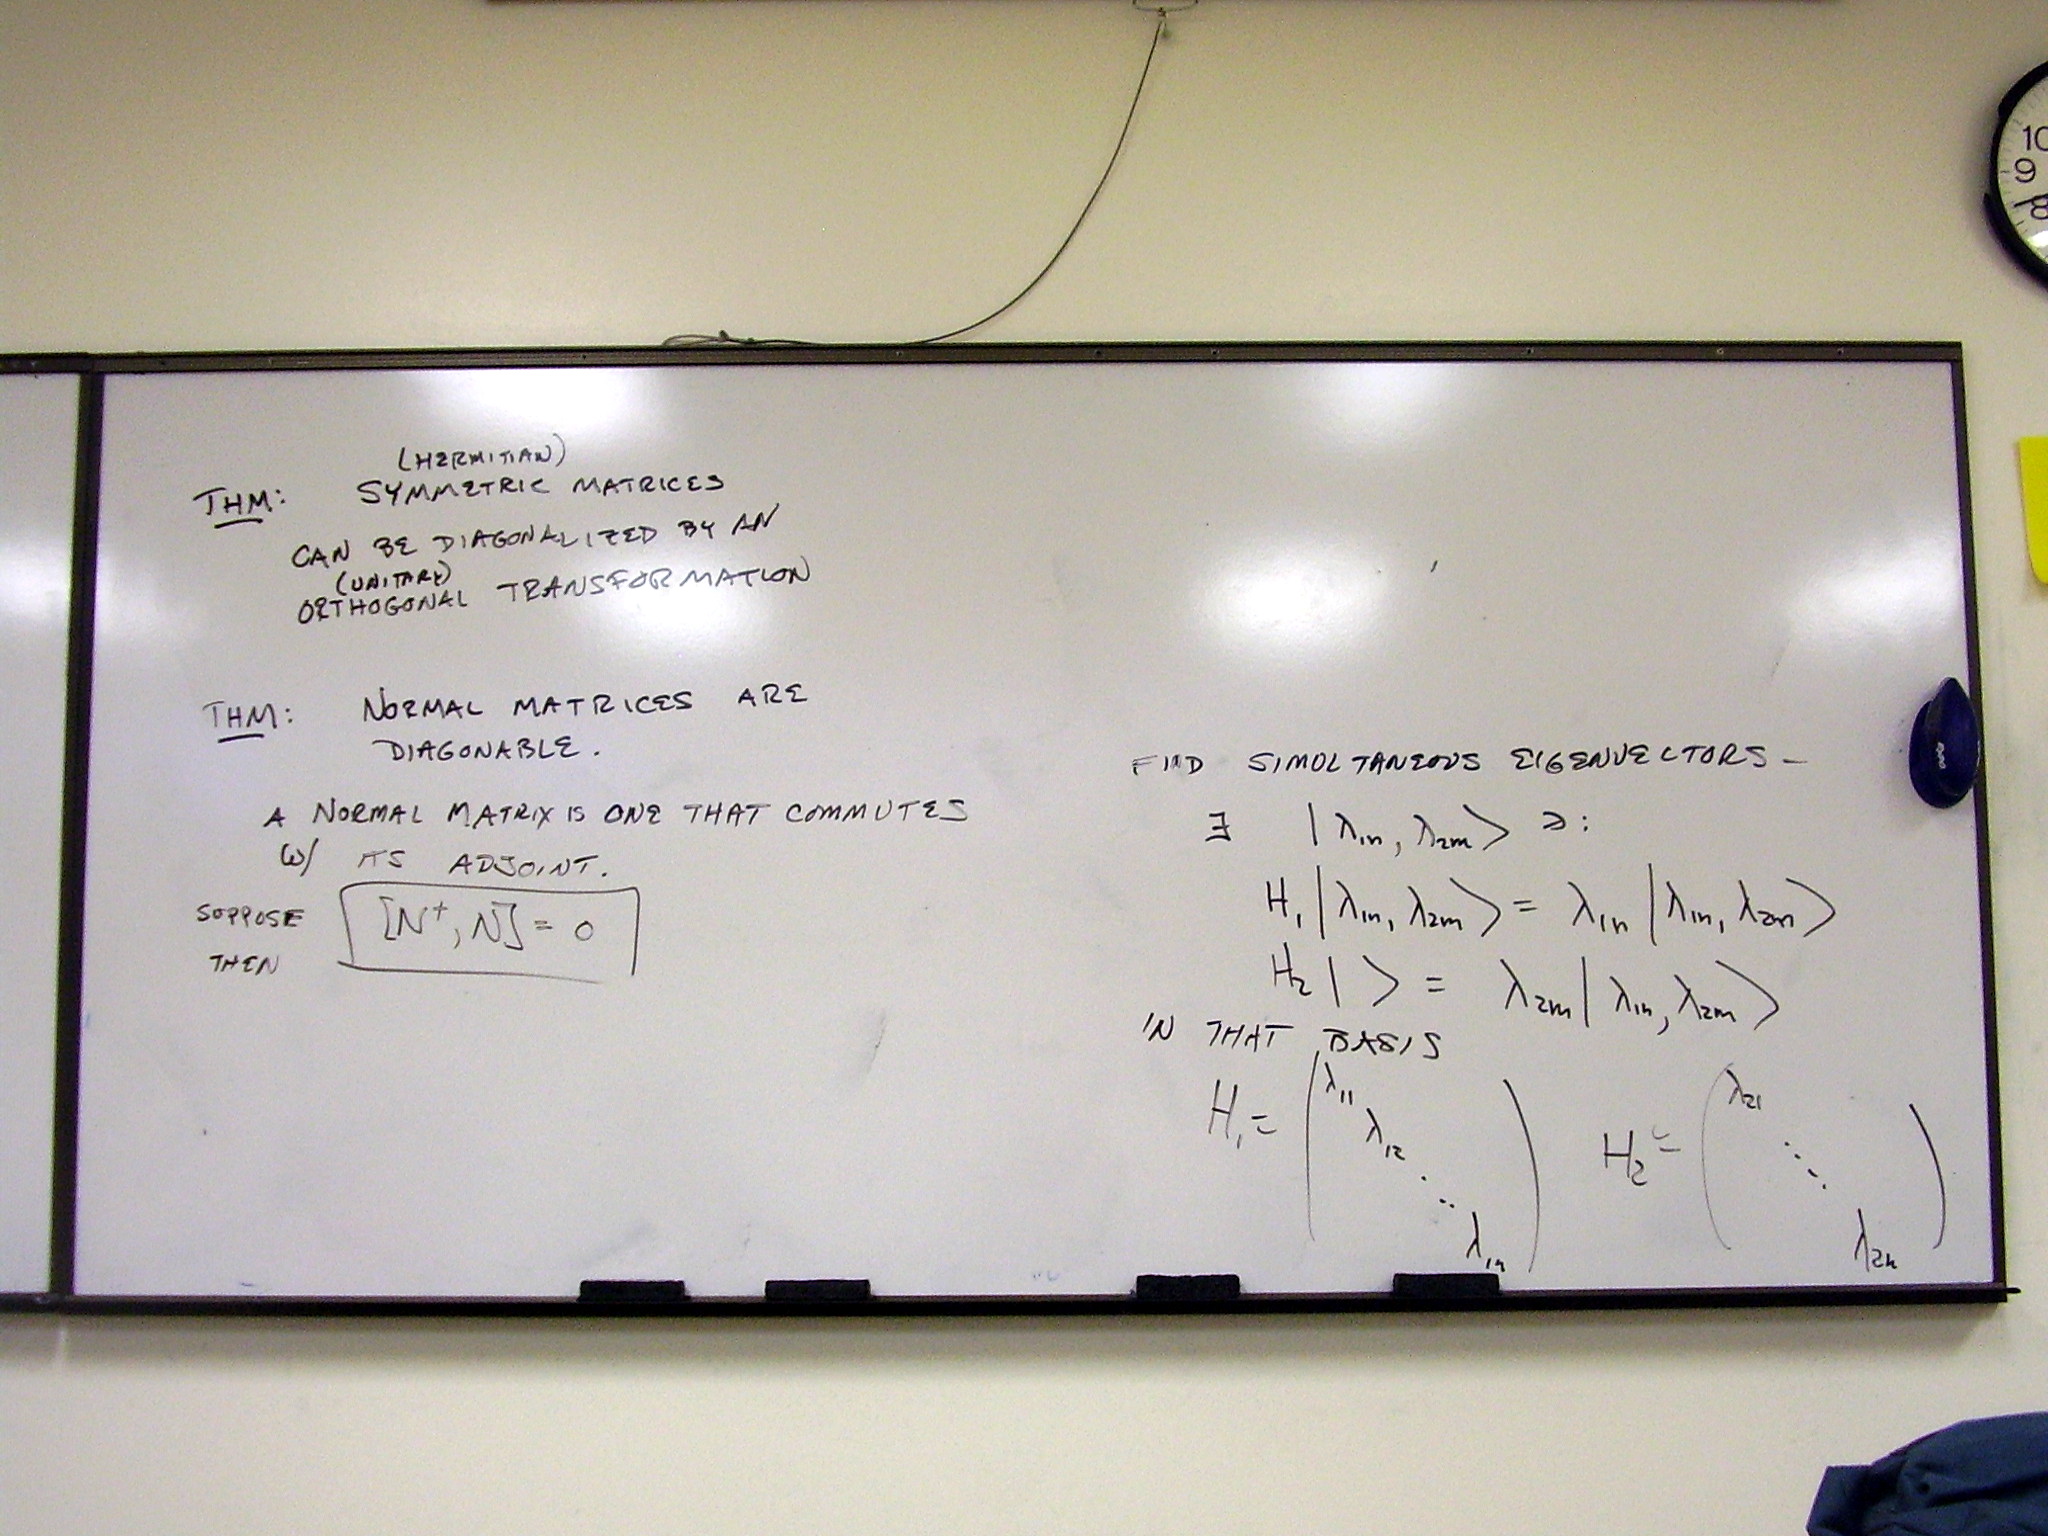 (HERMITIAN)
THM: SYMMETRIC MATRICES
CAN BE DIAGONALIZED BY AN
(UNITARY)
ORTHOGONAL TRANSFORMATION
THM: NORMAL MATRICES ARE
DIAGONABLE.
A NORMAL MATRIX IS ONE THAT COMMUTES
W/ ITS ADJOINT.
SUPPOSE [N†, N] = 0
THEN
FIND SIMULTANEOUS EIGENVECTORS –
∃ |λ₁ₙ, λ₂ₘ⟩ ∋:
H₁|λ₁ₙ, λ₂ₘ⟩ = λ₁ₙ|λ₁ₙ, λ₂ₘ⟩
H₂| ⟩ = λ₂ₘ|λ₁ₙ, λ₂ₘ⟩
IN THAT BASIS
H₁ = (λ₁₁ λ₁₂ ⋱ λ₁ₙ) H₂ = (λ₂₁ ⋱ λ₂ₙ)
10
9
8